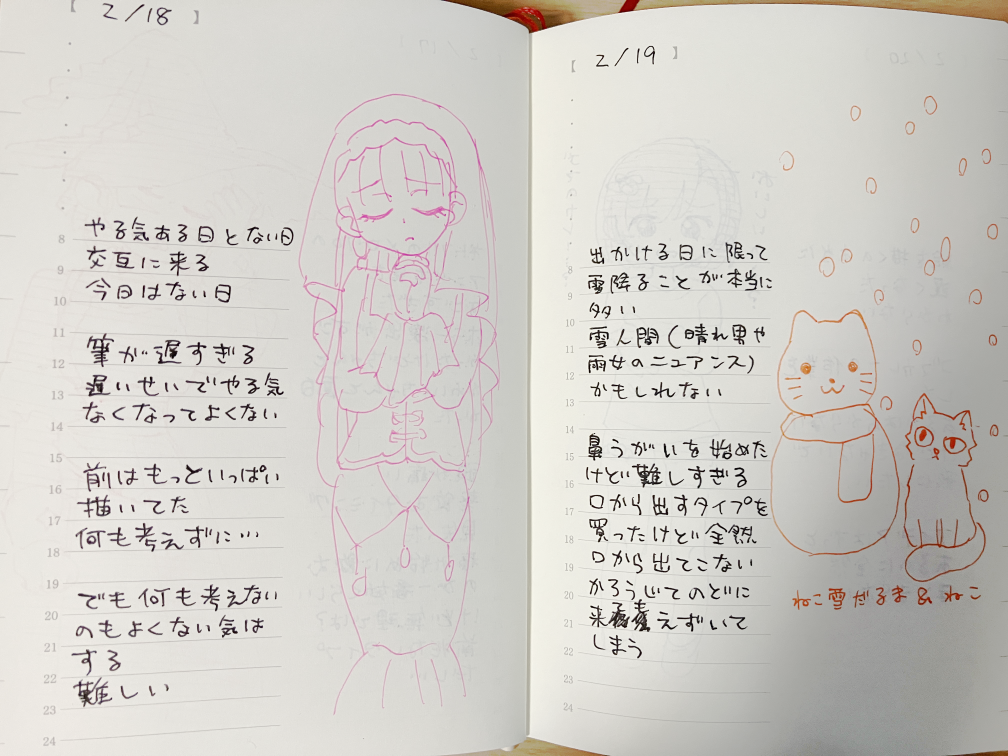 【 2/18 】
やる気ある日とない日
交互に来る
今日はない日
筆が遅すぎる
遅いせいでやる気
なくなってよくない
前はもっといっぱい
描いてた
何も考えずに…
でも何も考えない
のもよくない気は
する
難しい
8
9
10
11
12
13
14
15
16
17
18
19
20
21
22
23
24
【 2/19 】
出かける日に限って
雪降ることが本当に
多い
雪人間(晴れ男や
雨女のニュアンス)
かもしれない
鼻うがいを始めた
けど難しすぎる
口から出すタイプを
買ったけど全然
口から出てこない
かろうじてのどに
来てもえずいて
しまう
8
9
10
11
12
13
14
15
16
17
18
19
20
21
22
23
24
ねこ雪だるま&ねこ